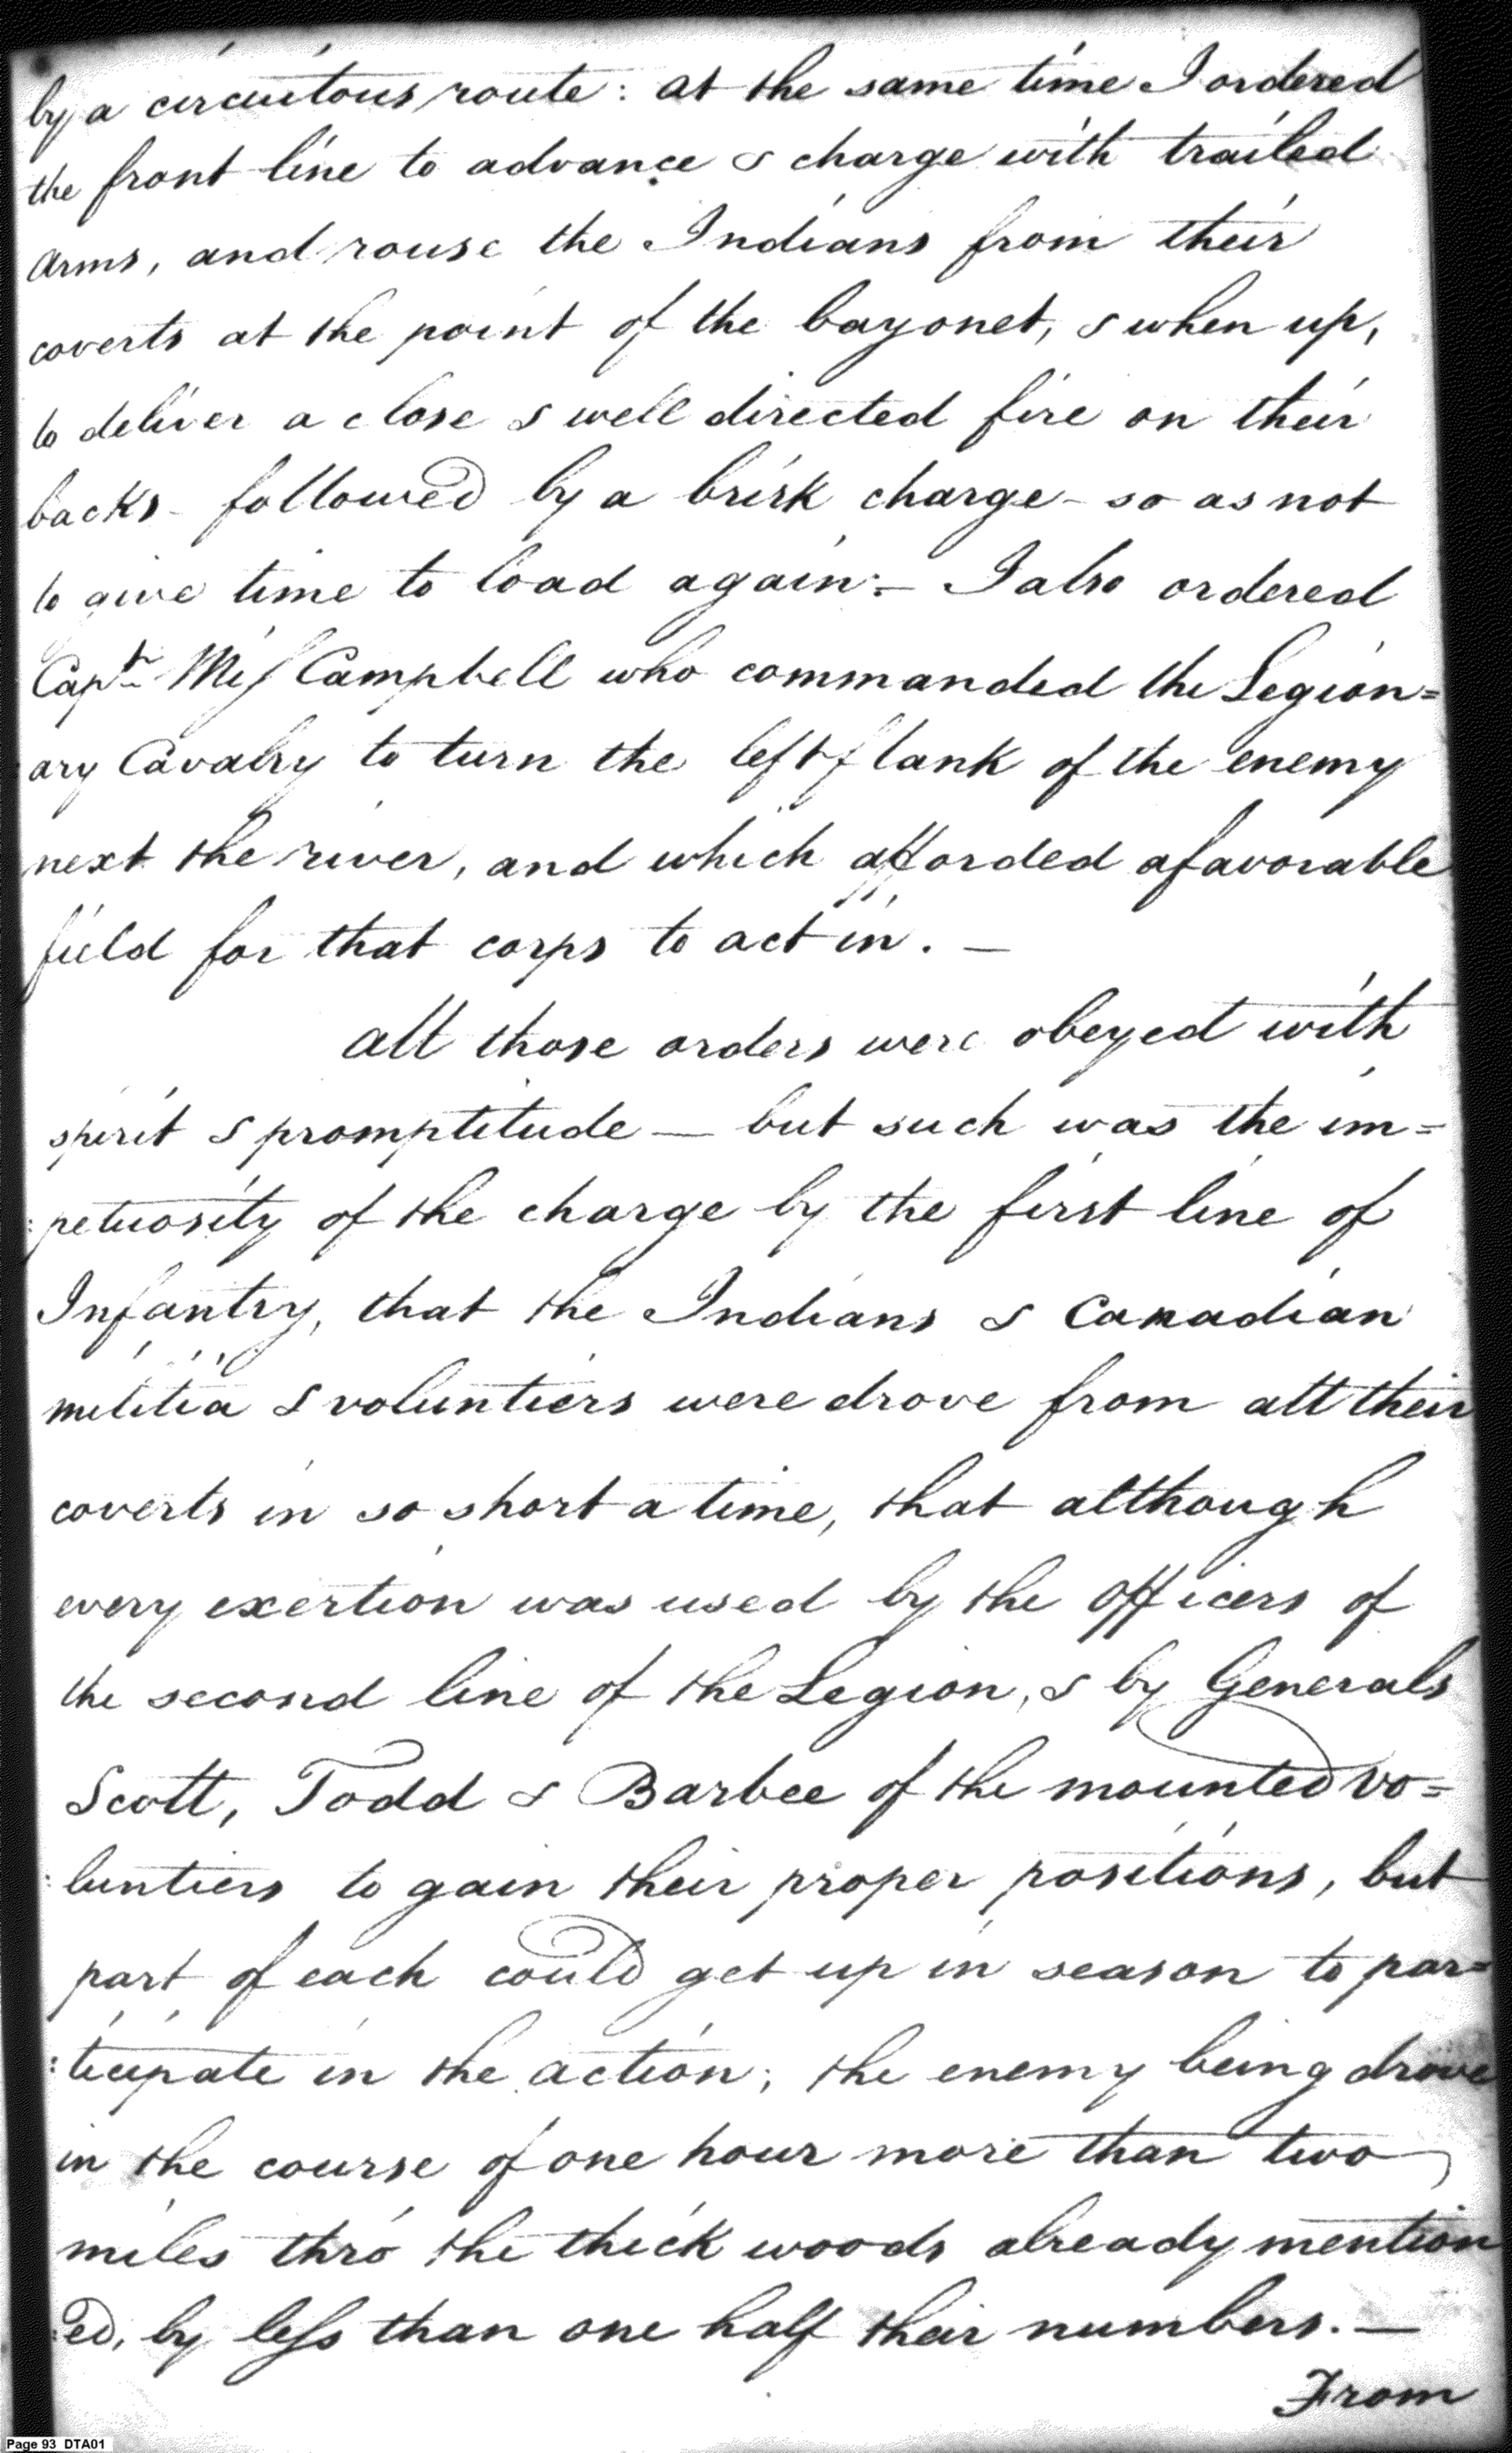 by a circuitous route: at the same time I ordered
the front line to advance & charge with trailed
arms, and rouse the Indians from their
coverts at the point of the bayonet, & when up,
to deliver a close & well directed fire on their
backs - followed by a brisk charge - so as not
to give time to load again:- I also ordered
Capt. Mis Campbell who commanded the Legion=
ary Cavalry to turn the left flank of the enemy
next the river, and which afforded a favorable
field for that corps to act in. —
all those orders were obeyed with
spirit & promptitude — but such was the im=
:petuosity of the charge by the first line of
Infantry, that the Indians & Canadian
militia & voluntiers were drove from all their
coverts in so short a time, that although
every exertion was used by the officers of
the second line of the Legion, & by Generals
Scott, Todd & Barbee of the mounted vo=
:luntiers to gain their proper positions, but
part of each could get up in season to par=
:ticipate in the action; the enemy being drove
in the course of one hour more than two
miles thro' the thick woods already mention
:ed, by less than one half their numbers. —
From
Page 93 DTA01